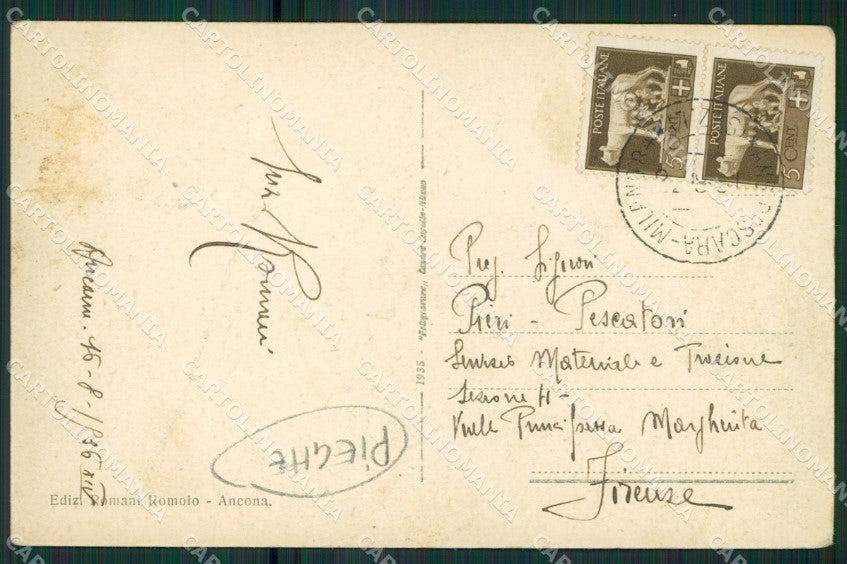 POSTE ITALIANE
5
POSTE ITALIANE
5 CENT.
PESCARA-MILANO
Preg. Signori
Pieri - Pescatori
Servizio Materiale e Trazione
Sezione H -
Viale Principessa Margherita
Firenze
Romani
Ancona. 16-8-1936 XIV
PIEGHE
Ediz. Romani Romolo - Ancona.
1935 -
CARTOLINOMANIA